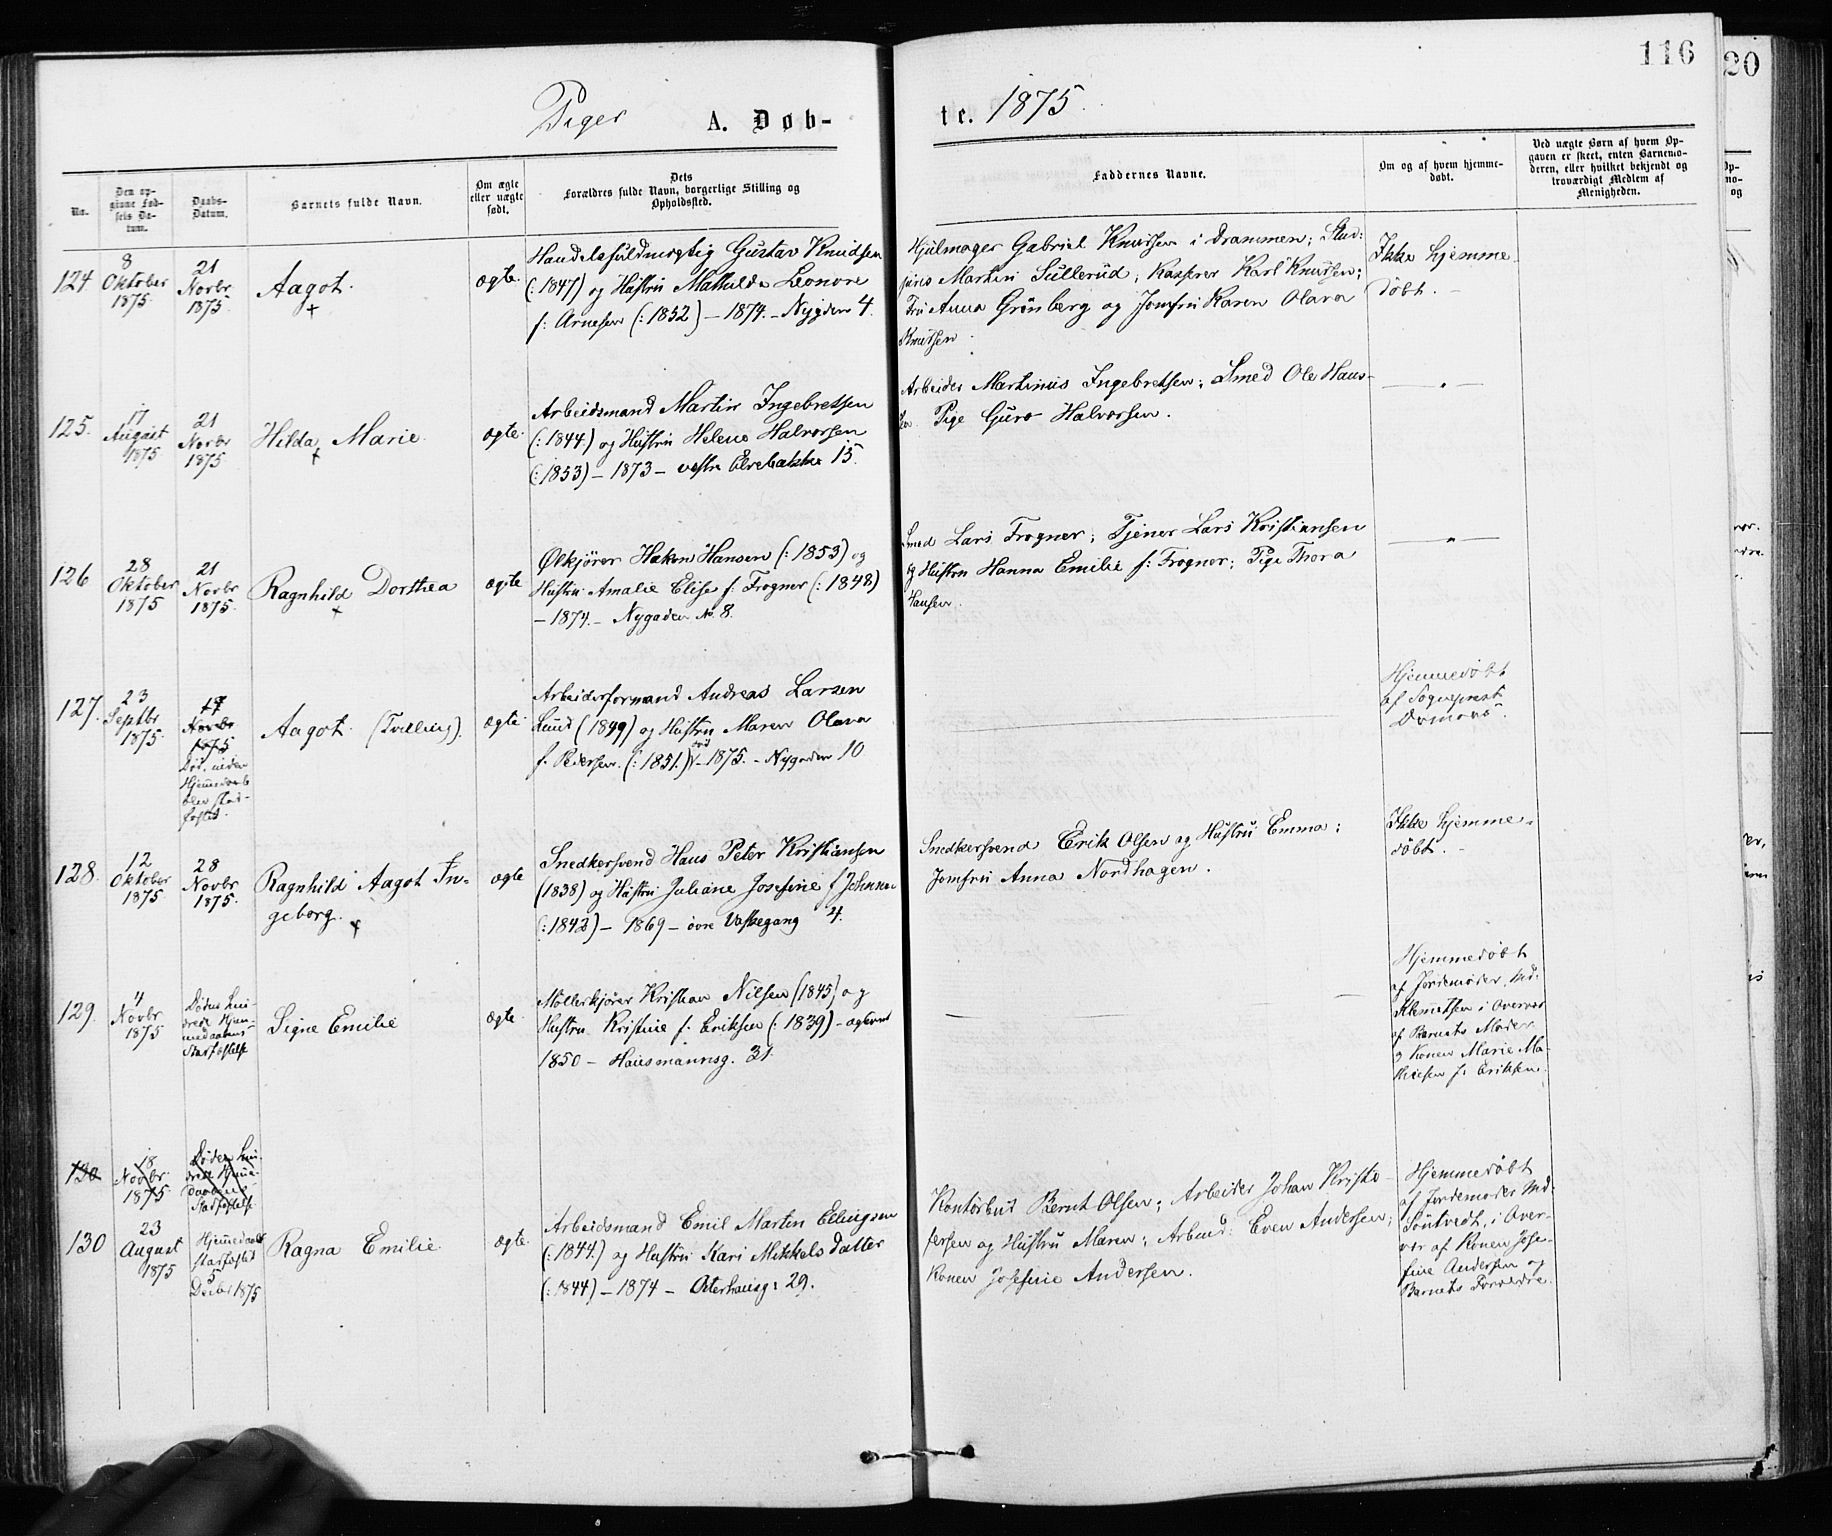 116
20
Piger A. Døb-
te. 1875.
No.
Den op-
givne Fød-
sels Da-
tum.
Daabs-
Datum.
Barnets fulde Navn.
Om ægte
eller uægte
født.
Dets
Forældres fulde Navn, borgerlige Stilling og
Opholdssted.
Faddernes Navne.
Om og af hvem hjemme-
døbt.
Ved uægte Børn af hvem Op-
gaven er skeet, enten Barnemo-
deren, eller hvilket bekjendt og
troværdigt Medlem af
Menigheden.
124.
8
Oktober
1875.
21
Novbr
1875.
Aagot.
+
ægte.
Handelsfuldmægtig Gustav Knudsen
(:1847) og Hustru Mathilde Leonore
f: Arnesen (:1852) – 1874. – Nygden 4.
Hjulmager Gabriel Knudsen i Drammen; Stud:
juris Martin Sullerud; Kasserer Karl Knudsen;
Fru Anna Grønberg og Jomfru Karen Olava
Knudsen
Ikke hjemme-
døbt. –
125.
17
August
1875
21
Novbr
1875.
Hilda Marie.
+
ægte.
Arbeidsmand Martin Ingebretsen
(:1844.) og Hustru Helene Halvorsen
(:1853) – 1873 – vestre Elvebakke 15.
Arbeider Martinus Ingebretsen; Smed Ole Han-
sen Pige Guro Halvorsen.
— „ —
126
28
Oktober
1875
21
Novbr
1875.
Ragnhild Dorthea
+
ægte
Ølkjører Hakon Hansen (:1853) og
Hustru Amalie Elise f: Frogner (:1848)
– 1874. – Nygaden No 8.
Smed Lars Frogner; Tjener Lars Kristiansen
og Hustru Hanna Emilie f: Frogner; Pige Thora
Hansen.
— „ —
127.
23
Septbr
1875.
17
Novbr
1875
Død, inden
Hjemmedaab
blev stad-
fæstet.
Aagot. (Tvilling).
ægte.
Arbeidsformand Andreas Larsen
Lund (1849) og Hustru Maren Olava
f. Pedersen. (:1851.) – 1875. – Nygaden 10
Hjemmedøbt
af Sogneprest
128.
12
Oktober
1875
28
Novbr
1875.
Ragnhild Aagot In-
geborg.
+
ægte
Snedkersvend Hans Peter Kristiansen
(1838) og Hustru Juliane Josefine f Johnne
(:1842) – 1869 – øvre Vaskegang 4.
Snedkersvend Erik Olsen og Hustru Emma;
Jomfru Anna Nordhagen.
Ikke hjemme-
døbt. –
129.
4
Novbr
1875
Døden hin-
drede Hjem-
medaabens
Stadfæstelse
Signe Emilie
ægte.
Møllerkjører Kristian Nilsen (1845) og
Hustru Kristine f. Eriksen (:1839) – ægteviet
1850 – Hausmannsg. 31.
Hjemmedøbt
af Jordemoder Md.
Klemetsen i Overvær
af Barnets Moder
og Konen Marie Ma-
thiesen f: Eriksen.
130
18
Novbr
1875.
Døden hin-
drede Hjemme-
daabens
Stadfæstelse
130
23
August
1875
Hjemmedaab
stadfæstet
5
Decbr 1875
Ragna Emilie.
ægte.
Arbeidsmand Emil Martin Ellingsen
(:1844.) og Hustru Kari Mikkels datter
(:1844) – 1874 – Osterhausg: 29.
Kontorbud Bernt Olsen; Arbeider Johan Kristo-
fersen og Hustru Maren; Arbmd: Even Andersen;
Konen Josefine Andersen.
Hjemmedøbt
af Jordemoder Md.
Søntvedt, i Over-
vær af Konen Jose-
fine Andersen og
Barnets Forældre.